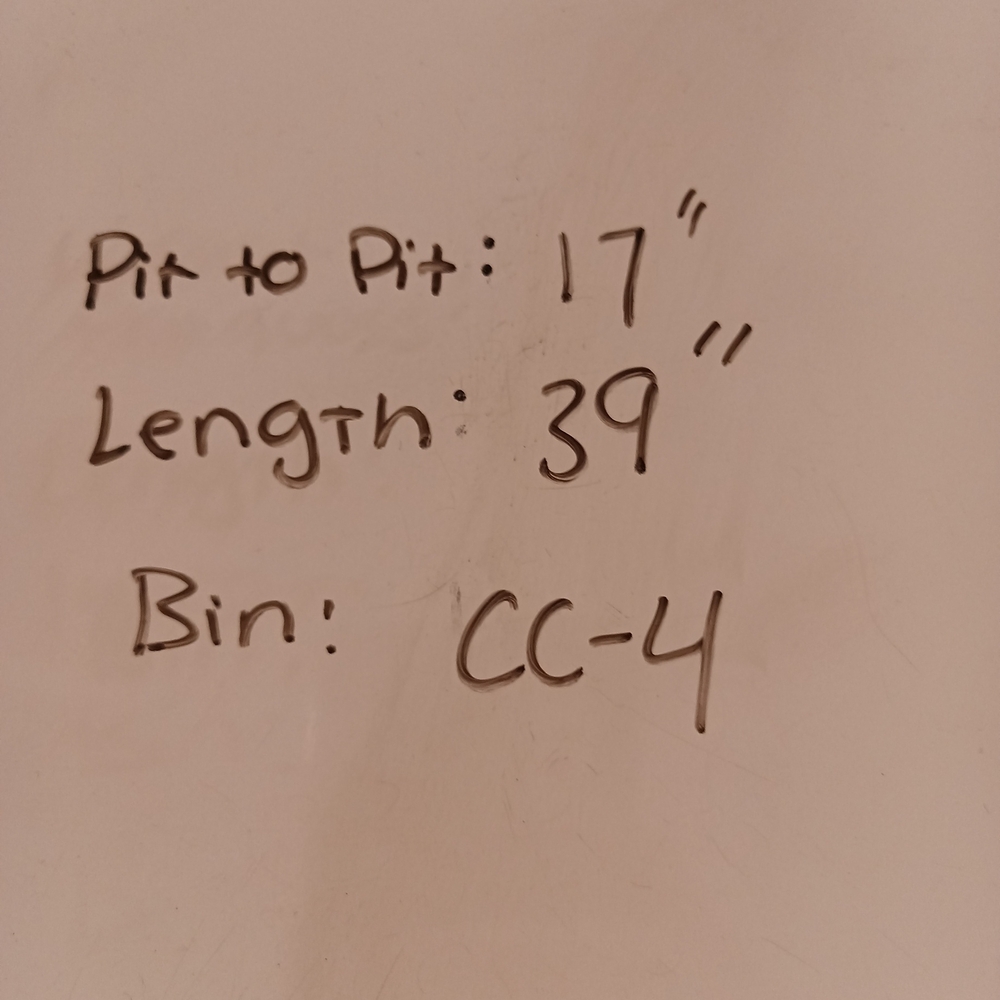 Pit to Pit: 17"
Length: 39"
Bin: CC-4